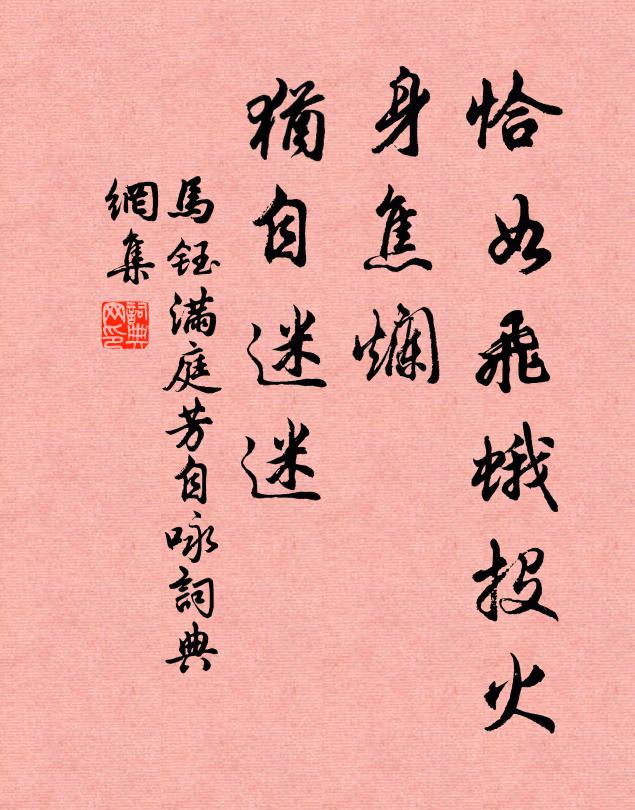 恰如飛蛾投火
身焦爛
猶自迷迷
馬鈺滿庭芳自咏詞典
網集
詞典
网印